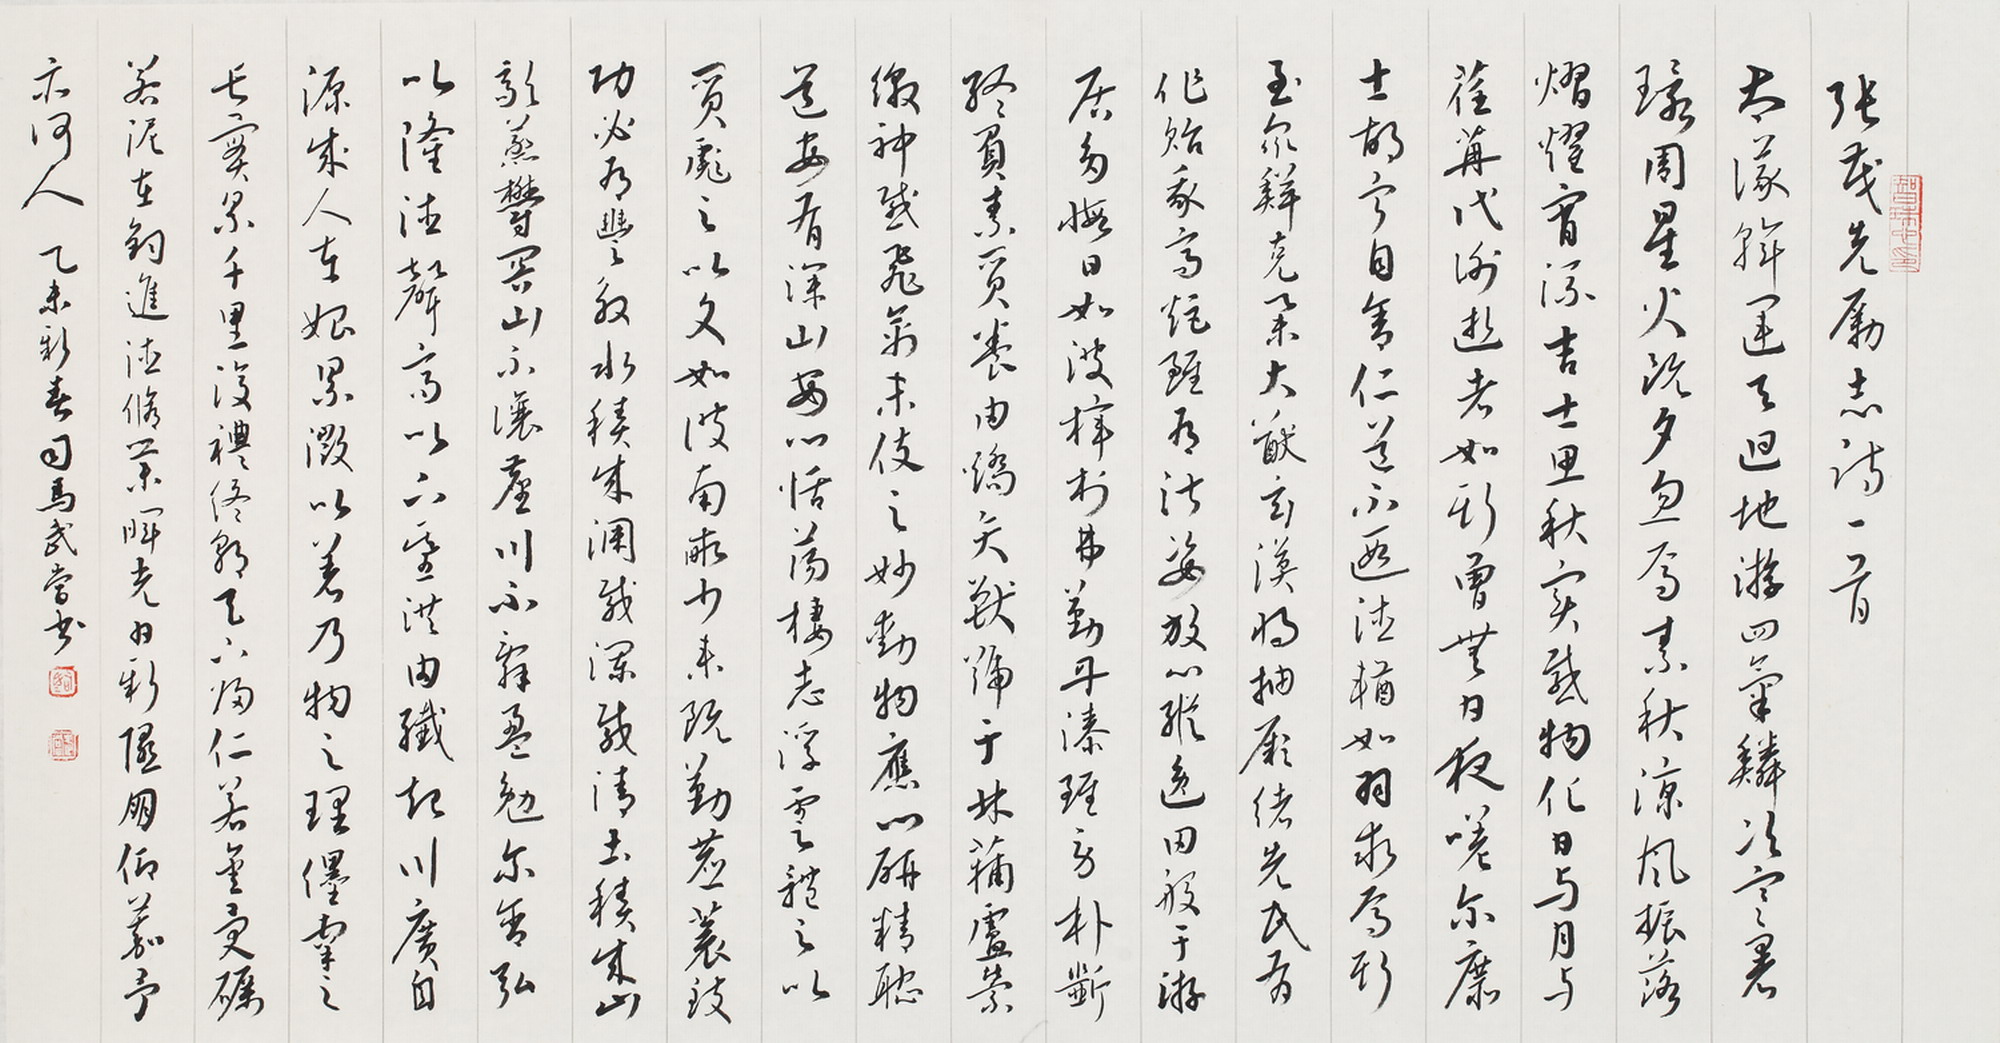 張茂先勵志詩一首
大儀斡運天迴地游四氣鱗次寒暑
環周星火既夕忽焉素秋涼風振落
熠燿宵流吉士思秋實感物化日与月与
荏苒代謝逝者如斯曾無日夜嗟尔庶
士胡寧自舍仁道不遐德輶如羽求焉斯
至眾鮮克舉大猷玄漠將抽厥緒先民有
作貽我高矩雖有淑姿放心縱逸田般于游
居多暇日如彼梓材弗勤丹漆雖勞朴斲
終負素質養由矯矢獸號于林蒲盧縈
繳神感飛禽末伎之妙動物應心研精耽
道安有深山安心恬蕩棲志浮雲體之以
質彪之以文如彼南畝力耒既勤藨蓘致
功必有豐殷水積成瀾載瀾載清土積成山
歊蒸鬱冥山不讓塵川不辭盈勉尔含弘
以隆德聲高以下基洪由纖起川廣自
源成人在始累微以著乃物之理纆牽之
長實累千里復禮終朝天下歸仁若金受礪
若泥在鈞進德脩業暉光日新隰朋仰慕予
亦何人 乙未新春司馬武當書